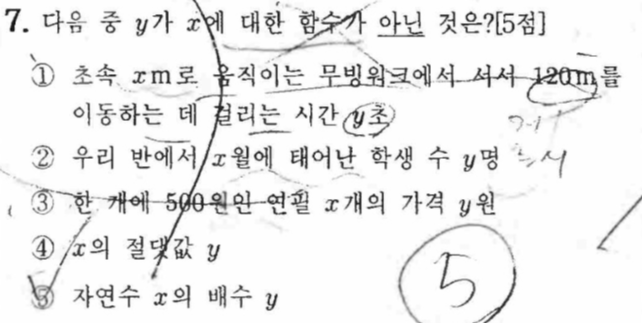 7. 다음 중 y가 x에 대한 함수가 아닌 것은?[5점]
① 초속 xm로 움직이는 무빙워크에서 서서 120m를
이동하는 데 걸리는 시간 y초
② 우리 반에서 x월에 태어난 학생 수 y명
③ 한 개에 500원인 연필 x개의 가격 y원
④ x의 절댓값 y
⑤ 자연수 x의 배수 y
5